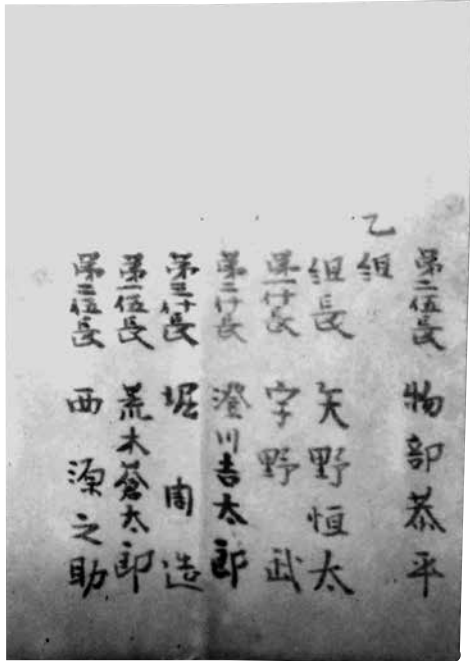 第二伍長 物部恭平
乙組
組長 矢野恒太
第一什長 宇野武
第二什長 澄川吉太郎
第三什長 堀周造
第一伍長 荒木蒼太郎
第二伍長 西源之助